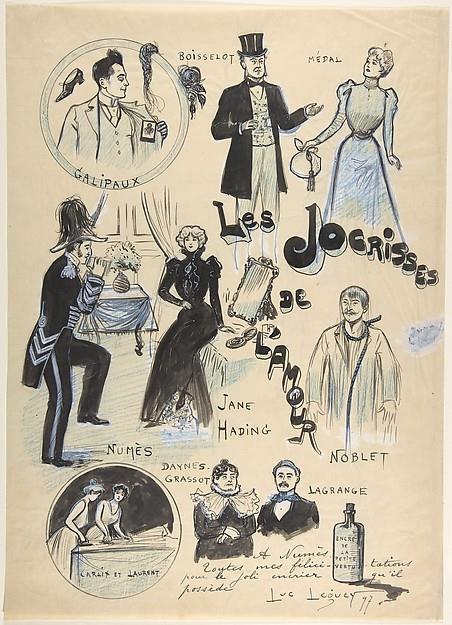 BOISSELOT
MÉDAL
GALIPAUX
LES
JOCRISSES
DE
L'AMOUR
JANE
HADING
NUMÈS
NOBLET
DAYNES-
GRASSOT
LAGRANGE
CARLIX ET LAURENT
ENCRE
DE
LA
PETITE
VERTU
A Numès
Toutes mes félicitations
pour le joli encrier qu'il
possède
Luc Leguey 97